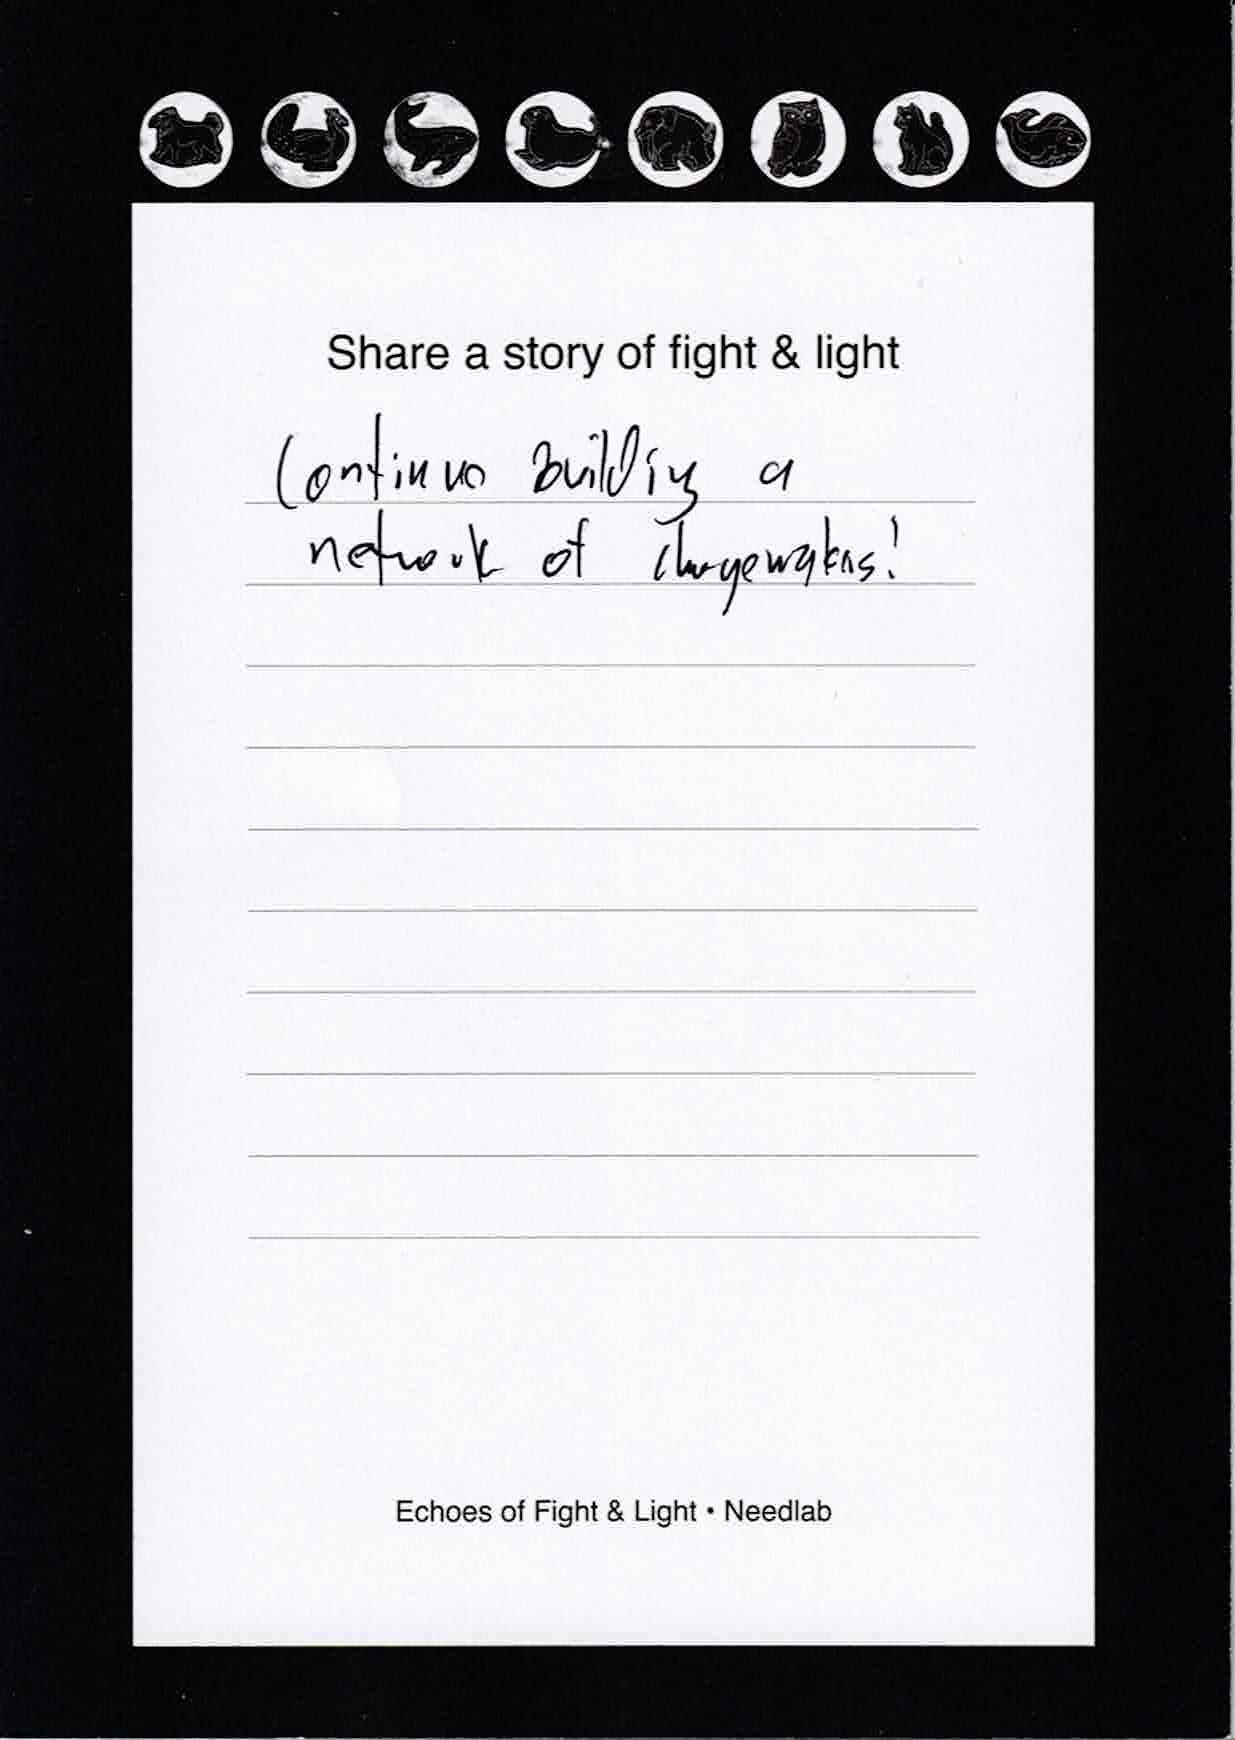 Share a story of fight & light
Continue Building a
network of changemakers!
Echoes of Fight & Light • Needlab